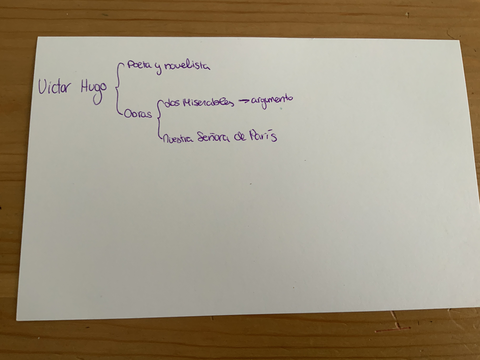 Poeta y novelista
Victor Hugo
Obras
Los Miserables → argumento
Nuestra Señora de París